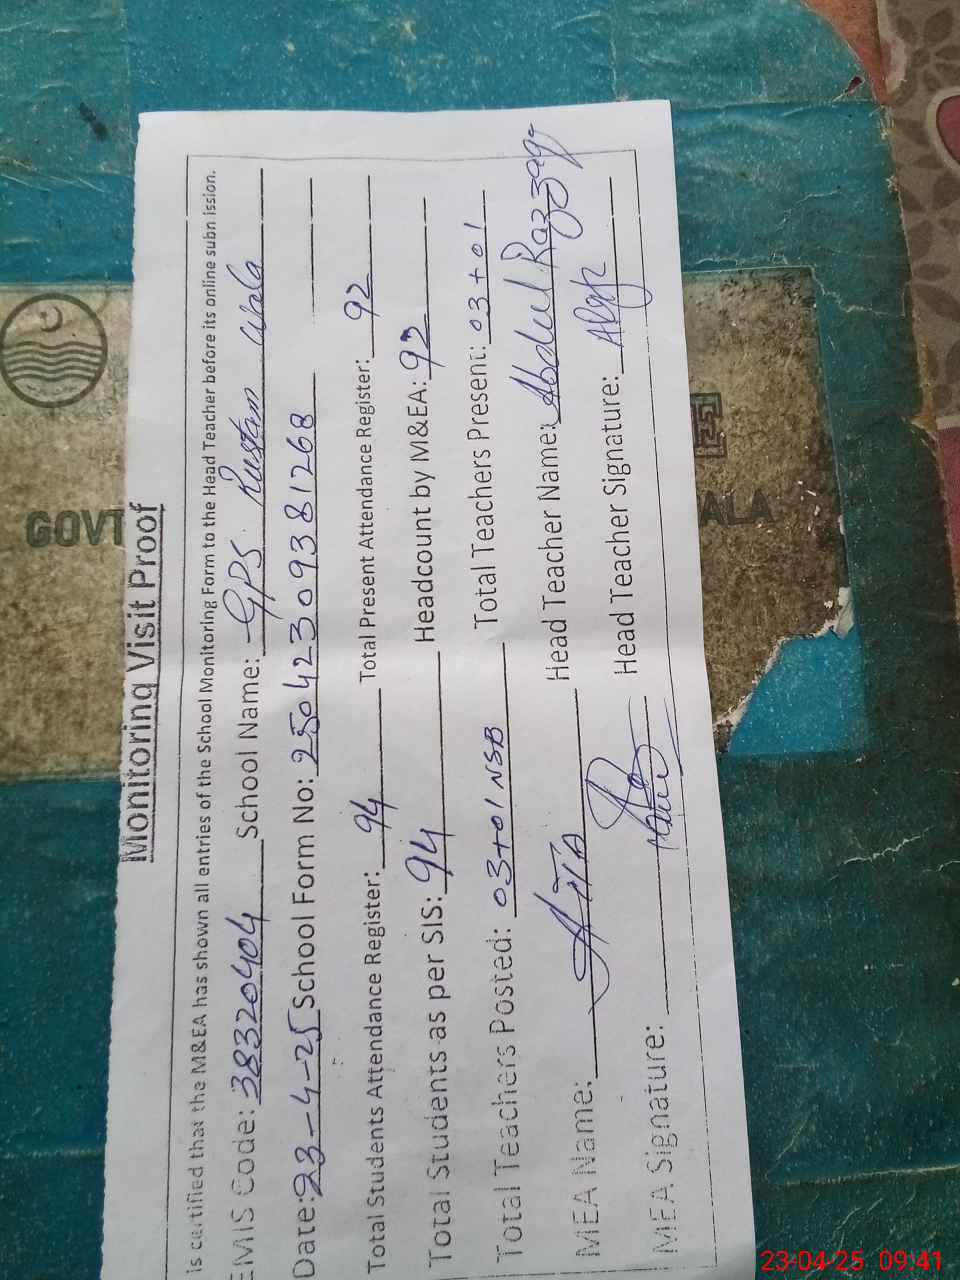 Monitoring Visit Proof
is certified that the M&EA has shown all entries of the School Monitoring Form to the Head Teacher before its online submission.
EMIS Code: 38320404 School Name: GPS Rustam Wala
Date: 23-4-25 School Form No: 2504230938 1268
Total Students Attendance Register: 94 Total Present Attendance Register: 92
Total Students as per SIS: 94 Headcount by M&EA: 92
Total Teachers Posted: 03+01 NSB Total Teachers Present: 03+01
MEA Name: Head Teacher Name: Abdul Razzaq
MEA Signature: Head Teacher Signature:
GOVT
ALA
23-04-25 09:41